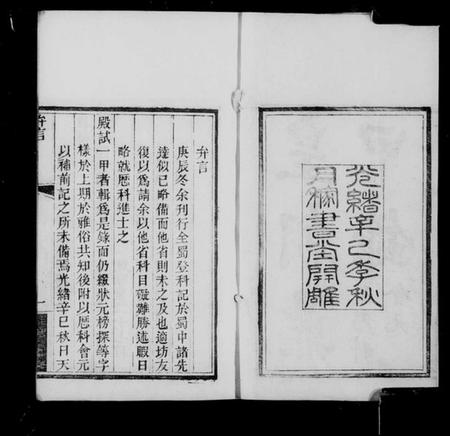 光緒辛巳季秋
月㮤書堂開雕
弁言
庚辰冬余刊行全蜀登科記於蜀中諸先
達似已略備而他省則未之及也適坊友
復以爲請余以他省科目礙難勝述暇日
略就歷科進士之
殿試一甲者輯爲是錄面仍綴狀元榜探等字
樣於上期於雅俗共知後附以歷科會元
以補前記之所未備焉光緒辛巳秋日天
弁言
一